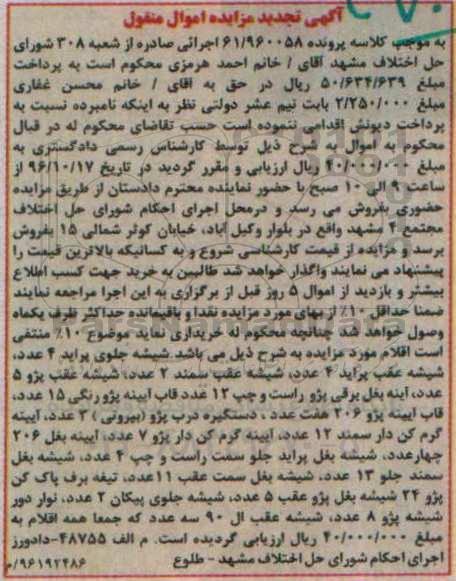 آگهی تجدید مزایده اموال منقول
به موجب کلاسه پرونده ۶۱/۹۶۰۰۵۸ اجرائی صادره از شعبه ۳۰۸ شورای
حل اختلاف مشهد آقای / خانم احمد هرمزی محکوم است به پرداخت
مبلغ ۵۰/۶۳۴/۶۳۹ ریال در حق به آقای / خانم محسن غفاری
مبلغ ۲/۲۵۰/۰۰۰ بابت نیم عشر دولتی نظر به اینکه نامبرده نسبت به
پرداخت دیونش اقدامی ننموده است حسب تقاضای محکوم له در قبال
محکوم به اموال به شرح ذیل توسط کارشناس رسمی دادگستری به
مبلغ ۴۰/۰۰۰/۰۰۰ ریال ارزیابی و مقرر گردید در تاریخ ۹۶/۱۰/۱۷ از
ساعت ۹ الی ۱۰ صبح با حضور نماینده محترم دادستان از طریق مزایده
حضوری بفروش می رسد و درمحل اجرای احکام شورای حل اختلاف
مجتمع ۴ مشهد واقع در بلوار وکیل آباد، خیابان کوثر شمالی ۱۵ بفروش
برسد و مزایده از قیمت کارشناسی شروع و به کسانیکه بالاترین قیمت را
پیشنهاد می نمایند واگذار خواهد شد طالبین به خرید جهت کسب اطلاع
بیشتر و بازدید از اموال ۵ روز قبل از برگزاری به این اجرا مراجعه نمایند
ضمنا حداقل ۱۰٪ از بهای مورد مزایده نقدا و باقیمانده حداکثر ظرف یکماه
وصول خواهد شد. چنانچه محکوم له خریداری نماید موضوع ۱۰٪ منتفی
است اقلام مورد مزایده به شرح ذیل می باشد شیشه جلوی پراید ۴ عدد،
شیشه عقب پراید ۴ عدد، شیشه عقب سمند ۲ عدد، شیشه عقب پژو ۵
عدد، آینه بغل برقی پژو راست و چپ ۱۲ عدد قاب آیینه پژو رنگی ۱۵ عدد،
قاب آیینه پژو ۲۰۶ هفت عدد ، دستگیره درب پژو (بیرونی ) ۳ عدد، آیینه
گرم کن دار سمند ۱۲ عدد، آیینه گرم کن دار پژو ۷ عدد، آیینه بغل ۲۰۶
چهارعدد، شیشه بغل پراید جلو سمت راست و چپ ۴ عدد، شیشه بغل
سمند جلو ۱۳ عدد، شیشه بغل سمت عقب ۱۱عدد، تیغه برف پاک کن
پژو ۲۴ شیشه بغل پژو عقب ۵ عدد، شیشه جلوی پیکان ۲ عدد، نوار دور
شیشه پژو ۸ عدد، شیشه عقب ال ۹۰ سه عدد که جمعا همه اقلام به
مبلغ ۴۰/۰۰۰/۰۰۰ ریال ارزیابی گردیده است. م الف ۴۸۷۵۵-دادورز
اجرای احکام شورای حل اختلاف مشهد - طلوع ۹۶۱۹۲۴۸۶/م